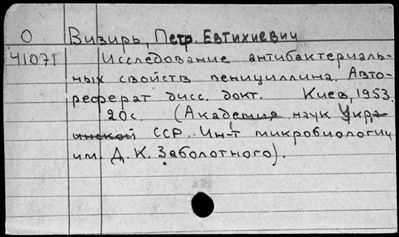 О Визирь, Петр Евтихиевич
41071 Исследование антибактериаль-
ных свойств пенициллина. Авто-
реферат дисс. докт. Киев, 1953.
20с. (Академия наук Укра-
инской ССР. Ин-т микробиологии
им. Д. К. Заболотного).